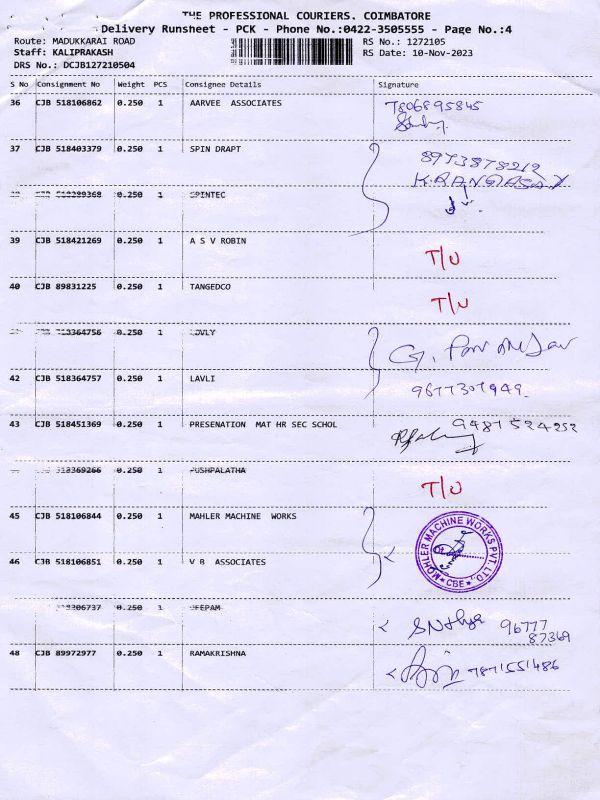 THE PROFESSIONAL COURIERS. COIMBATORE
Delivery Runsheet - PCK - Phone No.:0422-3505555 - Page No.:4
Route: MADUKKARAI ROAD RS No.: 1272105
Staff: KALIPRAKASH RS Date: 10-Nov-2023
DRS No.: DCJB127210504
S No Consignment No Weight PCS Consignee Details Signature
36 CJB 518106862 0.250 1 AARVEE ASSOCIATES 7806895845
37 CJB 518403379 0.250 1 SPIN DRAPT 8973878212
K.RANGASAY
CJB 518389368 0.250 1 SPINTEC
39 CJB 518421269 0.250 1 A S V ROBIN T/U
40 CJB 89831225 0.250 1 TANGEDCO T/U
518364756 0.250 1 LOVLY G.
42 CJB 518364757 0.250 1 LAVLI 9677307949.
43 CJB 518451369 0.250 1 PRESENATION MAT HR SEC SCHOL 9487524252
CJB 518369266 0.250 1 PUSHPALATHA T/U
45 CJB 518106844 0.250 1 MAHLER MACHINE WORKS
MOHLER MACHINE WORKS PVT. LTD. ★ CBE ★
46 CJB 518106851 0.250 1 V B ASSOCIATES
0.250 1 DEEPAM 96777
87369
48 CJB 89972977 0.250 1 RAMAKRISHNA 7871551486